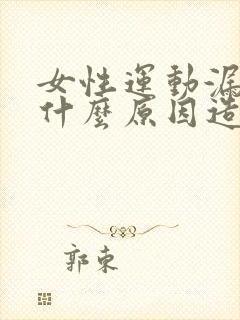 女性運動漏
什麼原因造
郭東